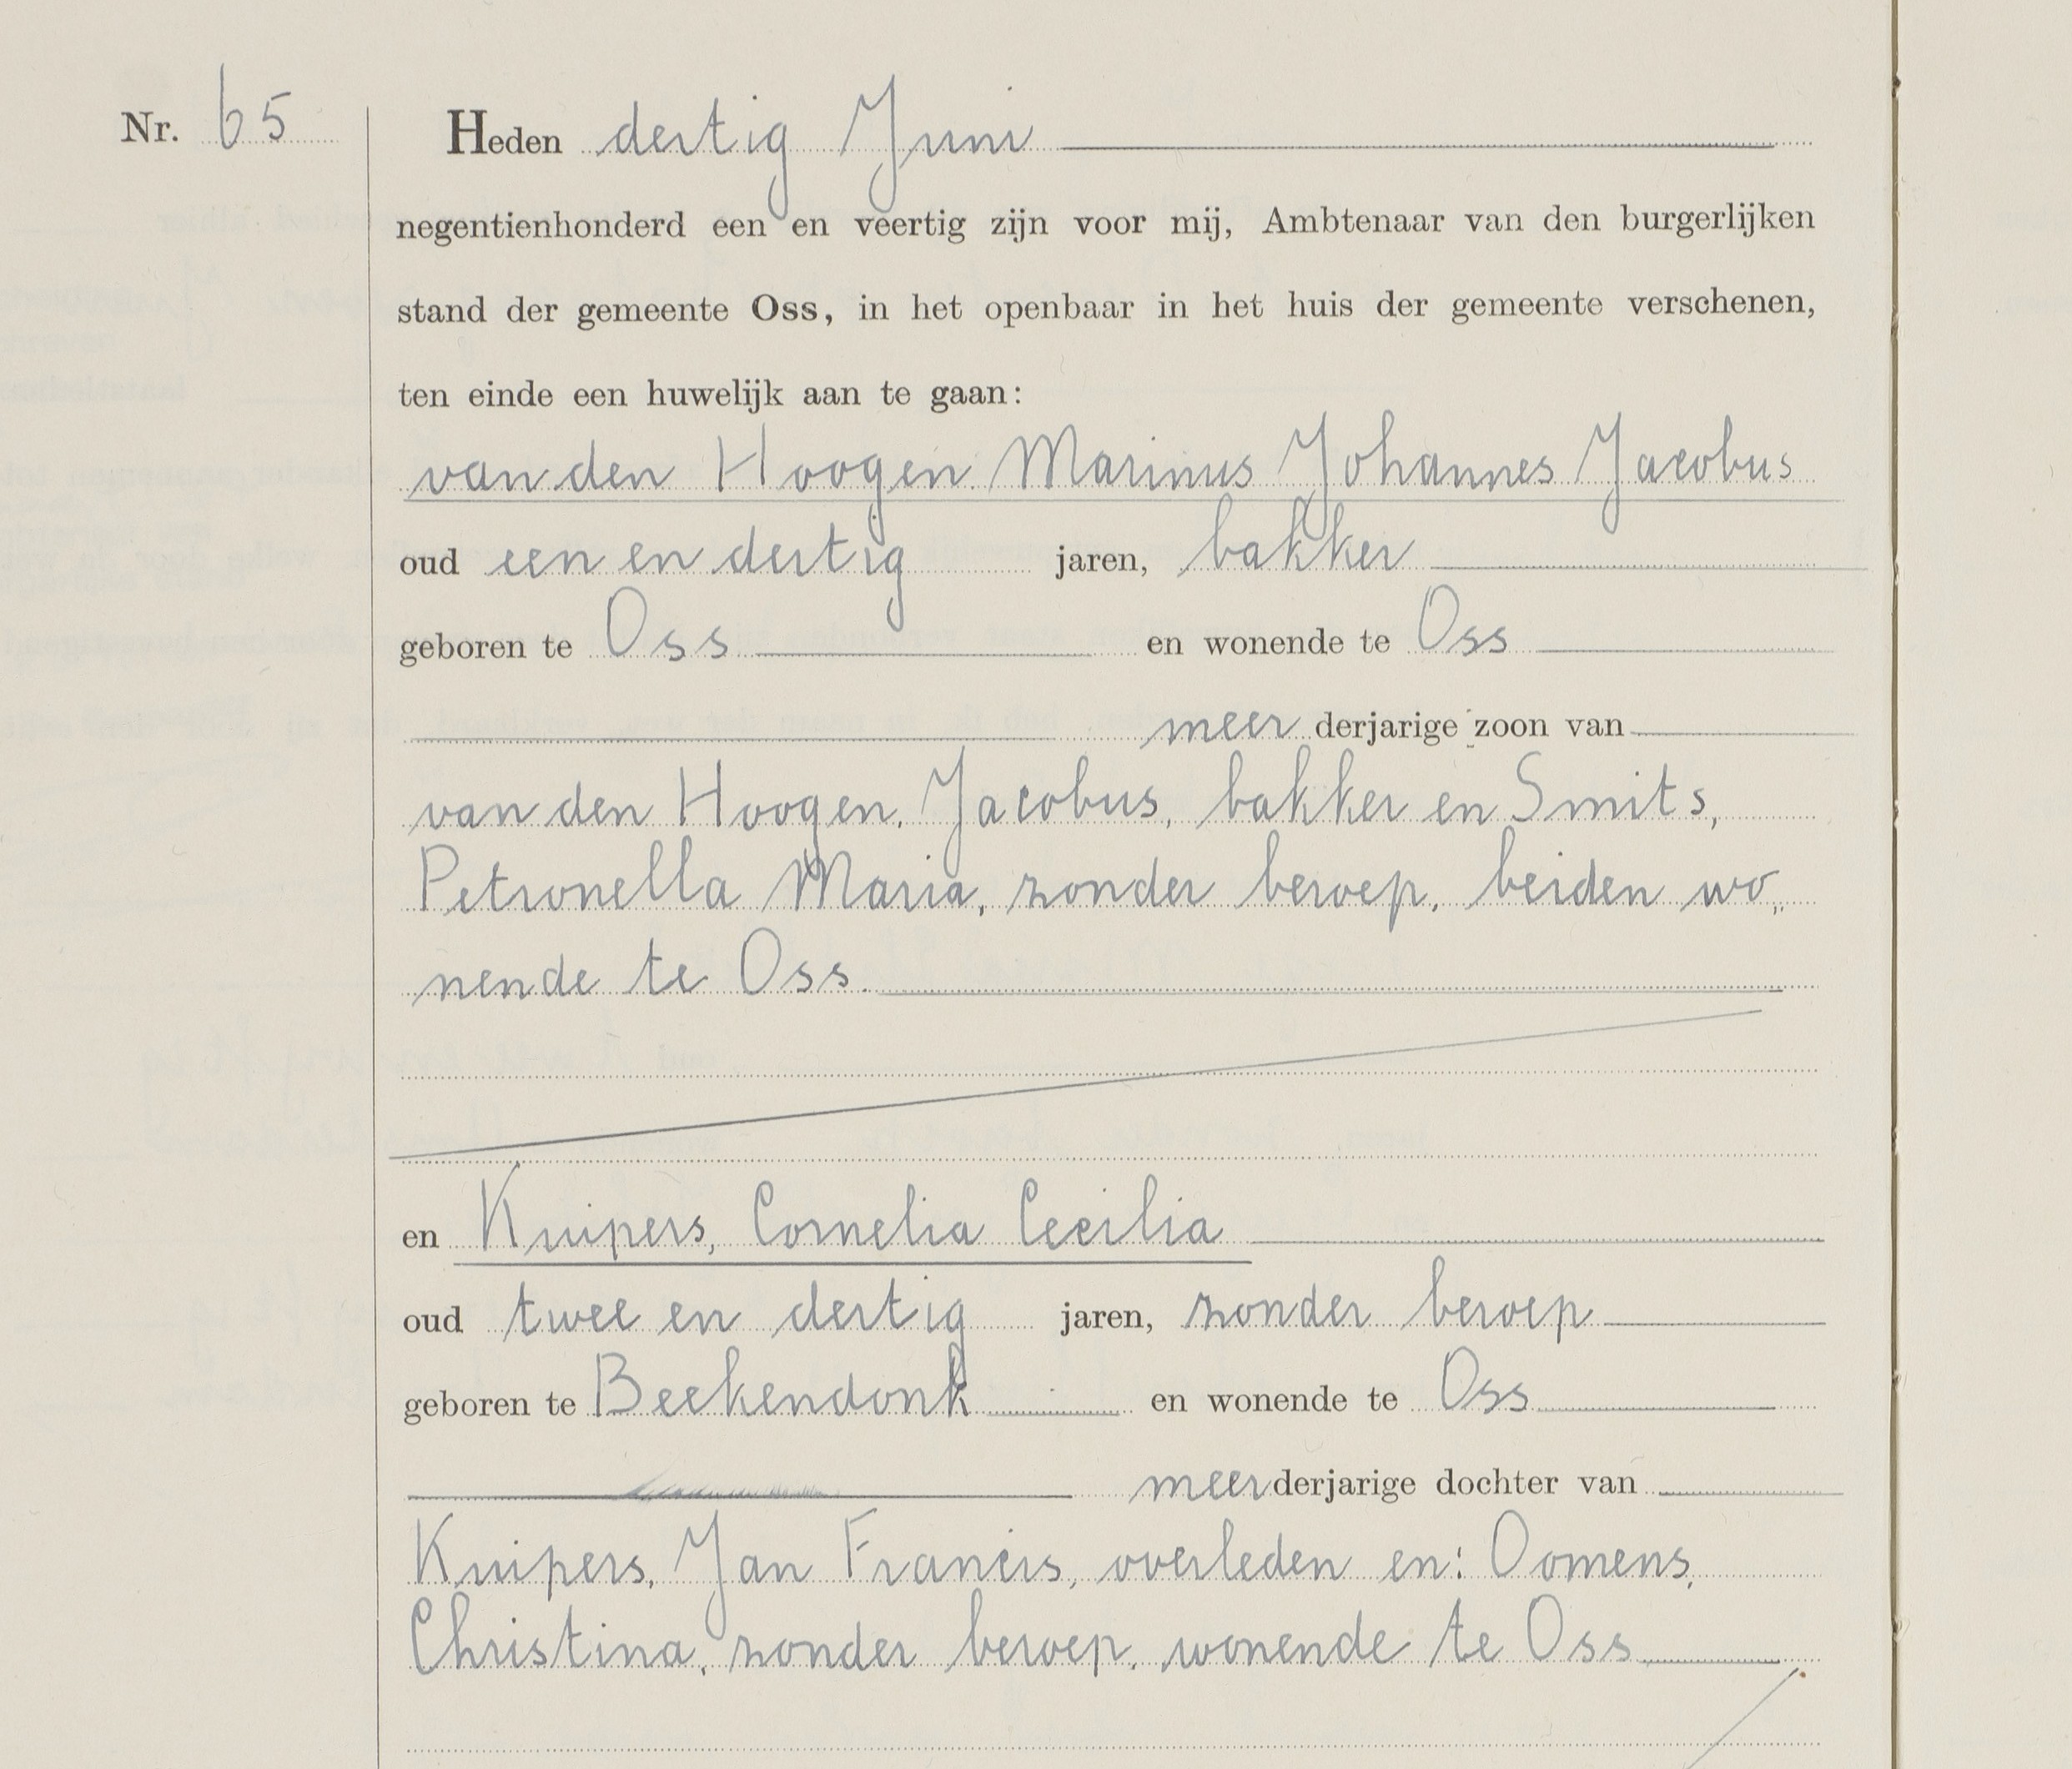 Nr. 65
Heden dertig Juni
negentienhonderd een en veertig zijn voor mij, Ambtenaar van den burgerlijken
stand der gemeente Oss, in het openbaar in het huis der gemeente verschenen,
ten einde een huwelijk aan te gaan:
van den Hoogen Marinus Johannes Jacobus
oud een en dertig jaren, bakker
geboren te Oss en wonende te Oss
meer derjarige zoon van
van den Hoogen, Jacobus, bakker en Smits,
Petronella Maria, zonder beroep, beiden wo„
nende te Oss.
en Kuipers, Cornelia Cecilia
oud twee en dertig jaren, zonder beroep
geboren te Beekendonk en wonende te Oss
meerderjarige dochter van
Kuipers, Jan Francis, overleden en: Oomens,
Christina, zonder beroep, wonende te Oss